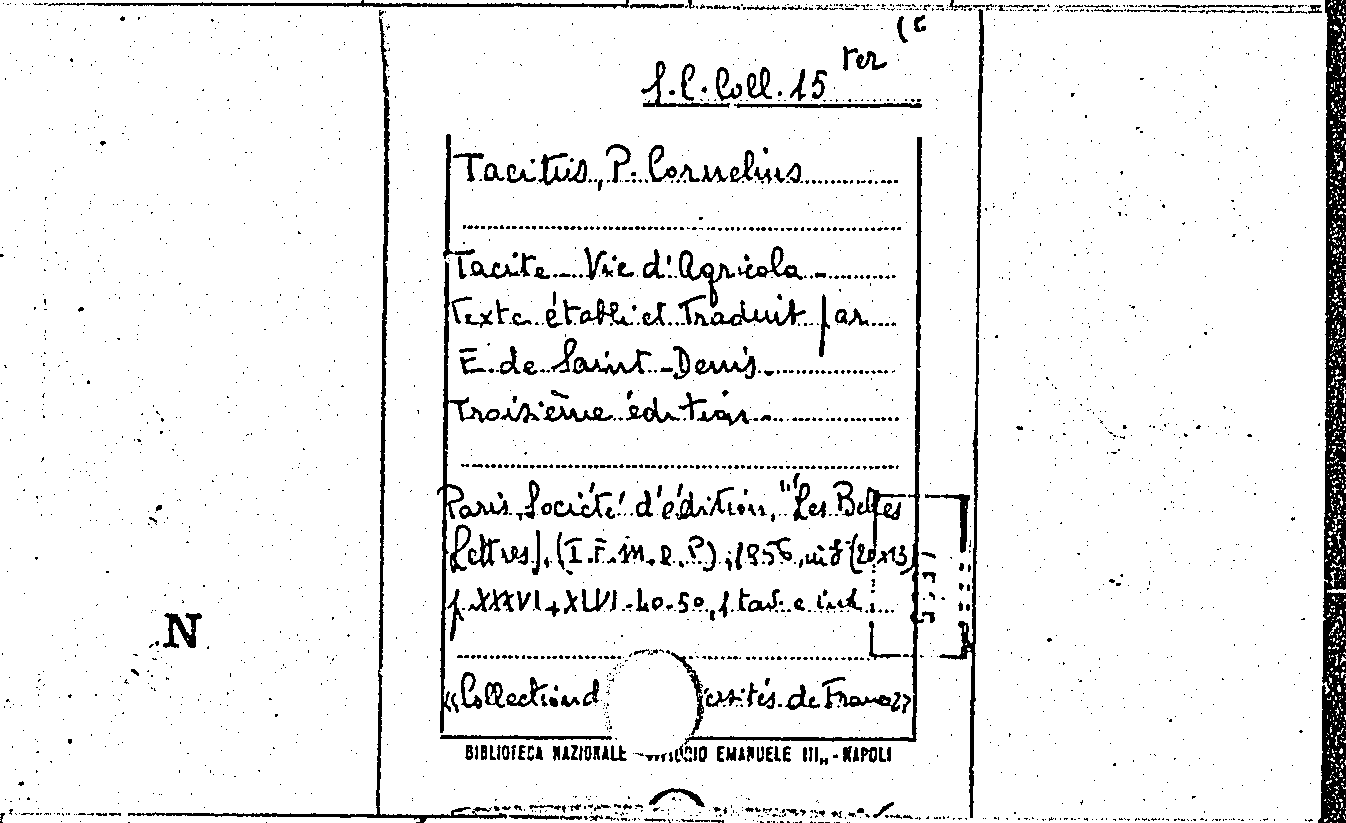 (6
S.C. Coll. 15 ter
Tacitus, P. Cornelius
Tacite - Vie d'Agricola -
Texte établi et traduit par
E. de Saint-Denis.
Troisième édition.
Paris, Société d'édition, "Les Belles
Lettres", (I.F.M.R.P), 1956, in 8° (20x13)
p. XXXVI + XLVI-40-50, 1 tav. e ind.
N
«Collection d ersités de France»
BIBLIOTECA NAZIONALE EMANUELE III„ - NAPOLI